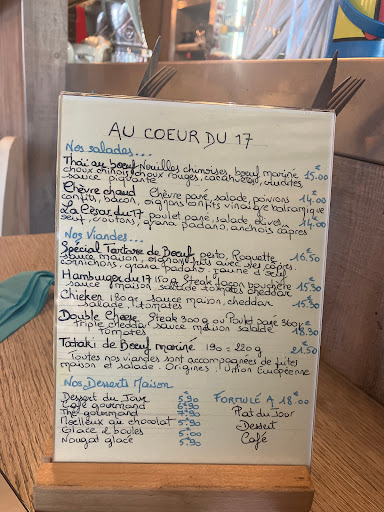 AU COEUR DU 17
Nos salades...
Thaï au boeuf Nouilles chinoises, boeuf mariné 15.00€
choux chinois, choux rouges, cacahuètes, crudités
sauce piquante
Chèvre chaud Chèvre pané, salade, poivrons 14.00€
confits, bacon, oignons confits vinaigre balsamique
La César du 17 poulet pané, salade, olives 14.00€
oeuf, croutons, grana padano, anchois, câpres
Nos Viandes...
Spécial Tartare de Boeuf pesto, Roquette 16.50€
sauce maison, oignons frits avec sel, câpres
cornichons, grana padano, jaune d'oeuf
Hamburger du 17 150g Steak façon bouchère 15.30
sauce maison, salade tomates cheddar
Chicken 180gr sauce maison, cheddar 15.50€
salade, tomates
Double Cheese Steak 300g ou Poulet pané 360gr
triple cheddar sauce maison salade 18.30€
tomates
Tataki de Boeuf mariné 190 - 220g 21.50€
Toutes nos viandes sont accompagnées de frites
maison et salade. Origines: Union Européenne
Nos Desserts Maison
Dessert du Jour 5.90
Café gourmand 6.90
Thé gourmand 7.90
Moelleux au chocolat 5.90
Glace 2 boules 5.00
Nougat glacé 5.90
FORMULE A 18.00€
Plat du Jour
Dessert
Café